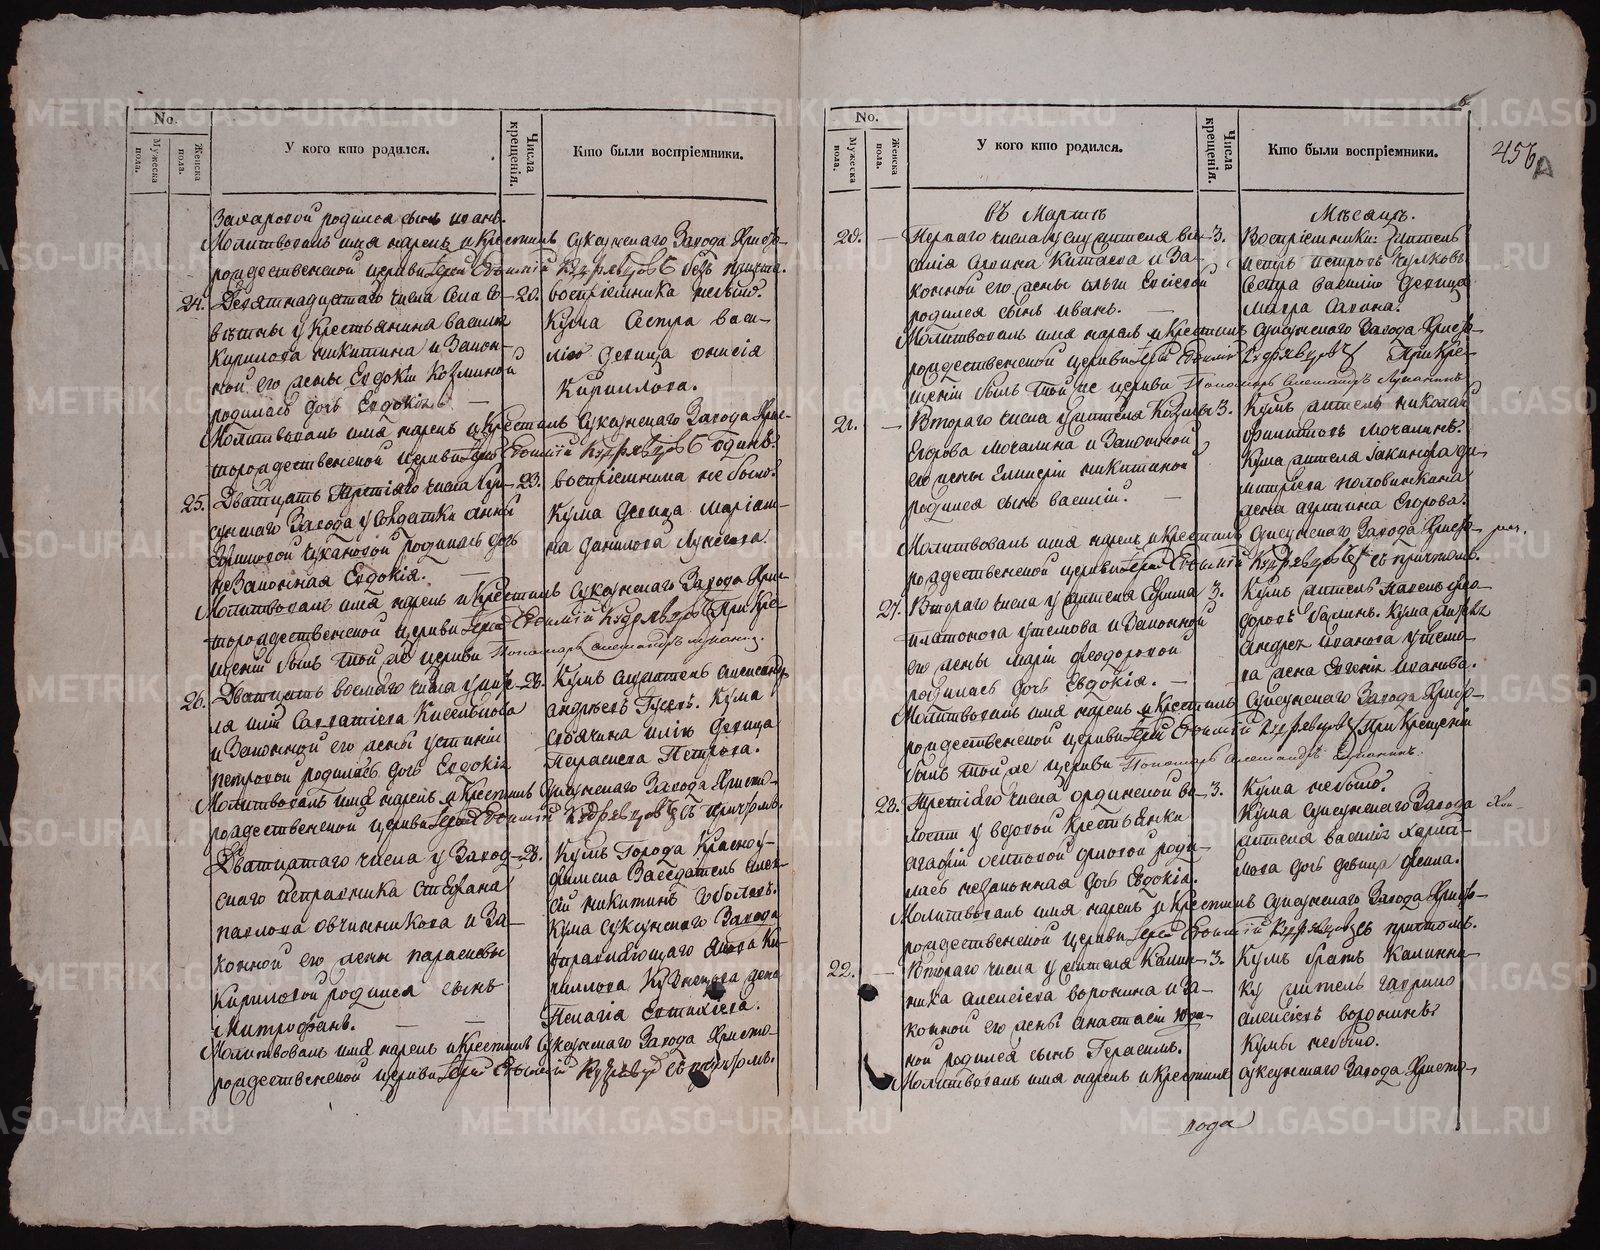 No.
Мужеска пола.
Женска пола.
У кого кто родился.
Числа крещенія.
Кто были воспріемники.
Захаровой родился сынъ иванъ.
Молитвовалъ имя нарекъ и крестилъ суксунскаго завода Христо-
рождественской церкви Іерей Евфимій Кудрявцовъ безъ причта.
24. Девятнадцатаго числа села Со-
ветны у крестьянина василья
Кирилова никитина и закон-
ной его жены Евдокіи Козминой
родилась дочь Евдокія.
20. воспріемника небыло.
Кума сестра васи-
лію девица онисія
Кирилова.
Молитвовалъ имя нарекъ и крестилъ суксунскаго завода Хрис-
торождественской церкви Іерей Евфимій Кудрявцовъ одинъ.
25. Дватцать третіяго числа Сук-
сунскаго завода у солдатки анны
родилась дочь
незаконная Евдокія.
23. воспріемника не было.
Кума девица маріам-
на данилова
Молитвовалъ имя нарекъ и крестилъ суксунскаго завода Хрис-
торождественской церкви Іерей Евфимій Кудрявцовъ При Кре-
щеніи былъ той же церкви Пономарь Александръ
26. Дватцать восмаго числа
Савватіева Кисельнова
и законной его жены устиніи
петровой родилась дочь Евдокія
28. Кумъ служитель александръ
андреевъ Гусевъ. Кума
девица
Параскева Петрова.
Молитвовалъ имя нарекъ и крестилъ суксунскаго завода Христо-
рождественской церкви Іерей Евфимій Кудрявцовъ съ причтомъ.
Дватцатаго числа у завод-
скаго исправника стефана
павлова овчинникова и за-
конной его жены параскевы
Кириловой родился сынъ
Митрофанъ.
28. Кумъ города Красноу-
фимска заседатель алек-
сій никитинъ соболевъ.
Кума суксунскаго завода
управляющаго якова Ки-
рилова Кузнецова жена
Пелагія Евтихіева.
Молитвовалъ имя нарекъ и крестилъ суксунскаго завода Христо-
рождественской церкви Іерей Евфимій Кудрявцовъ съ причтомъ.
No.
Мужеска пола.
Женска пола.
У кого кто родился.
Числа крещенія.
Кто были воспріемники.
456
въ Мартѣ
Мѣсяцѣ.
20. Перваго числа у служителя ва-
силія савина Китаева и за-
конной его жены ольги
родился сынъ иванъ.
3. Воспріемники: житель
петръ петровъ чулковъ
сестра василію девица
мавра савина.
Молитвовалъ имя нарекъ и крестилъ суксунскаго завода Христо-
рождественской церкви Іерей Евфимій Кудрявцовъ При Кре-
щеніи былъ той же церкви Пономарь Александръ
21. Втораго числа у жителя Козмы
Егорова мочалина и законной
его жены Гликеріи никитиной
родился сынъ василій.
3. Кумъ житель николай
филиповъ мочалинъ.
Кума жителя Іакинфа ди-
митріева половинкина
жена агрипина Егорова.
Молитвовалъ имя нарекъ и крестилъ суксунскаго завода Христо-
рождественской церкви Іерей Евфимій Кудрявцовъ съ причтомъ.
27. Втораго числа у жителя Ефима
платонова утемова и законной
его жены маріи феодоровой
родилась дочь Евдокія.
3. Кумъ житель павелъ фео-
доровъ балинъ. Кума жителя
андрея иванова утемо-
ва жена Евгенія иванова.
Молитвовалъ имя нарекъ и крестилъ суксунскаго завода Христо-
рождественской церкви Іерей Евфимій Кудрявцовъ При Крещеніи
былъ той же церкви Пономарь Александръ
28. Третіяго числа ординской во-
лости у вдовой крестьянки
агафіи осиповой роди-
лась незаконная дочь Евдокія.
3. Кума небыло.
Кума суксунскаго завода
жителя василія
дочь девица фекла.
Молитвовалъ имя нарекъ и крестилъ суксунскаго завода Христо-
рождественской церкви Іерей Евфимій Кудрявцовъ съ причтомъ.
22. Втораго числа у жителя Калин-
ника алексіева воронина и за-
конной его жены анастасіи
родился сынъ Герасимъ.
3. Кумъ братъ Калинни-
ку житель гаврило
алексіевъ воронинъ
Кумы небыло.
Молитвовалъ имя нарекъ и крестилъ суксунскаго завода Христо-
METRIKI.GASO-URAL.RU